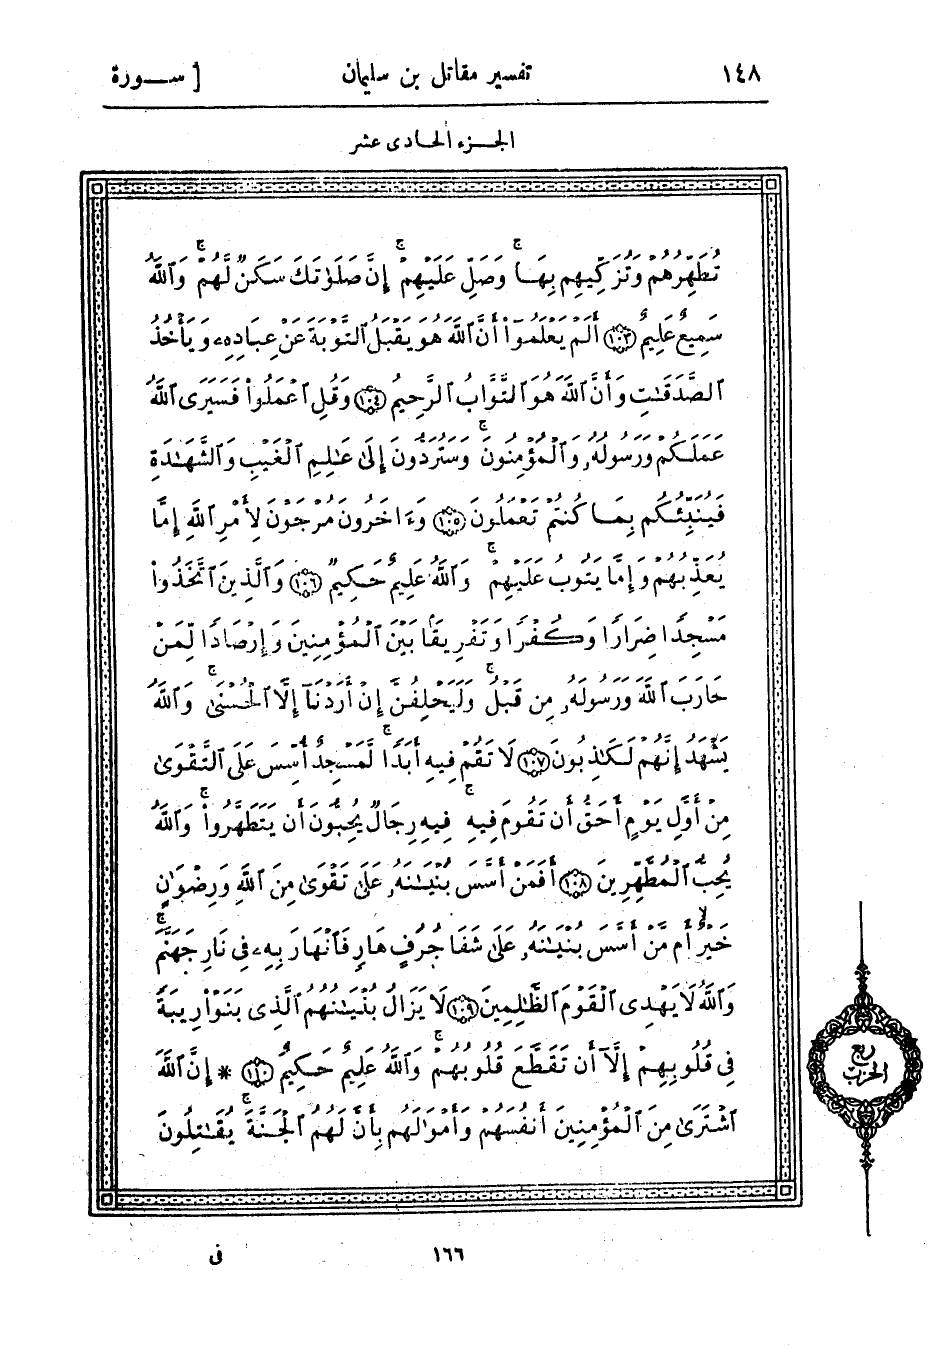 ١٤٨ تفسير مقاتل بن سليمان [ سـورة
الجـزء الحـادى عشر
تُطَهِّرُهُمْ وَتُزَكِّيهِم بِهَا ۚ وَصَلِّ عَلَيْهِمْ ۚ إِنَّ صَلَوٰتَكَ سَكَنٌ لَّهُمْ ۚ وَٱللَّهُ
سَمِيعٌ عَلِيمٌ ﴿١٠٣﴾ أَلَمْ يَعْلَمُوٓا۟ أَنَّ ٱللَّهَ هُوَ يَقْبَلُ ٱلتَّوْبَةَ عَنْ عِبَادِهِۦ وَيَأْخُذُ
ٱلصَّدَقَٰتِ وَأَنَّ ٱللَّهَ هُوَ ٱلتَّوَّابُ ٱلرَّحِيمُ ﴿١٠٤﴾ وَقُلِ ٱعْمَلُوا۟ فَسَيَرَى ٱللَّهُ
عَمَلَكُمْ وَرَسُولُهُۥ وَٱلْمُؤْمِنُونَ ۚ وَسَتُرَدُّونَ إِلَىٰ عَٰلِمِ ٱلْغَيْبِ وَٱلشَّهَٰدَةِ
فَيُنَبِّئُكُم بِمَا كُنتُمْ تَعْمَلُونَ ﴿١٠٥﴾ وَءَاخَرُونَ مُرْجَوْنَ لِأَمْرِ ٱللَّهِ إِمَّا
يُعَذِّبُهُمْ وَإِمَّا يَتُوبُ عَلَيْهِمْ ۚ وَٱللَّهُ عَلِيمٌ حَكِيمٌ ﴿١٠٦﴾ وَٱلَّذِينَ ٱتَّخَذُوا۟
مَسْجِدًا ضِرَارًا وَكُفْرًا وَتَفْرِيقًۢا بَيْنَ ٱلْمُؤْمِنِينَ وَإِرْصَادًا لِّمَنْ
حَارَبَ ٱللَّهَ وَرَسُولَهُۥ مِن قَبْلُ ۚ وَلَيَحْلِفُنَّ إِنْ أَرَدْنَآ إِلَّا ٱلْحُسْنَىٰ ۚ وَٱللَّهُ
يَشْهَدُ إِنَّهُمْ لَكَٰذِبُونَ ﴿١٠٧﴾ لَا تَقُمْ فِيهِ أَبَدًا ۚ لَّمَسْجِدٌ أُسِّسَ عَلَى ٱلتَّقْوَىٰ
مِنْ أَوَّلِ يَوْمٍ أَحَقُّ أَن تَقُومَ فِيهِ ۚ فِيهِ رِجَالٌ يُحِبُّونَ أَن يَتَطَهَّرُوا۟ ۚ وَٱللَّهُ
يُحِبُّ ٱلْمُطَّهِّرِينَ ﴿١٠٨﴾ أَفَمَنْ أَسَّسَ بُنْيَٰنَهُۥ عَلَىٰ تَقْوَىٰ مِنَ ٱللَّهِ وَرِضْوَٰنٍ
خَيْرٌ أَم مَّنْ أَسَّسَ بُنْيَٰنَهُۥ عَلَىٰ شَفَا جُرُفٍ هَارٍ فَٱنْهَارَ بِهِۦ فِى نَارِ جَهَنَّمَ ۗ
وَٱللَّهُ لَا يَهْدِى ٱلْقَوْمَ ٱلظَّٰلِمِينَ ﴿١٠٩﴾ لَا يَزَالُ بُنْيَٰنُهُمُ ٱلَّذِى بَنَوْا۟ رِيبَةً
فِى قُلُوبِهِمْ إِلَّآ أَن تَقَطَّعَ قُلُوبُهُمْ ۗ وَٱللَّهُ عَلِيمٌ حَكِيمٌ ﴿١١٠﴾ * إِنَّ ٱللَّهَ
ٱشْتَرَىٰ مِنَ ٱلْمُؤْمِنِينَ أَنفُسَهُمْ وَأَمْوَٰلَهُم بِأَنَّ لَهُمُ ٱلْجَنَّةَ ۚ يُقَٰتِلُونَ
ربع
الحزب
١٦٦ فى